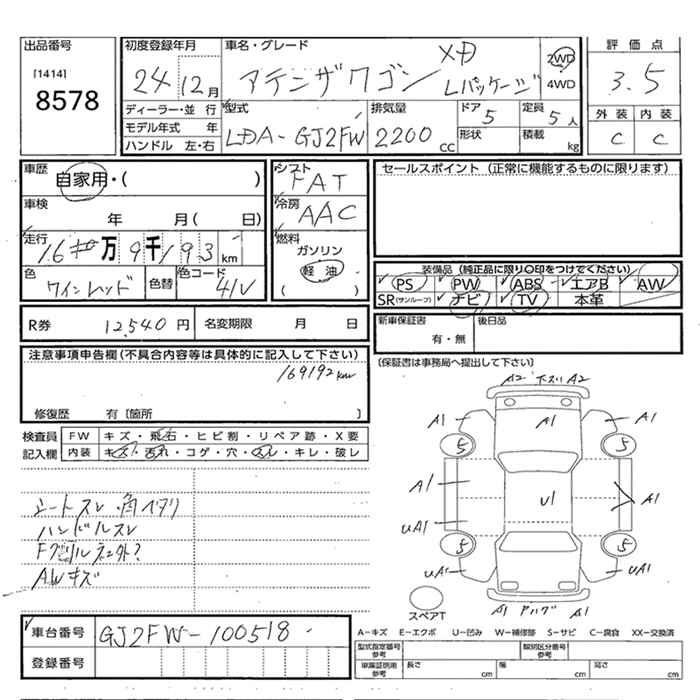 出品番号
[1414]
8578
初度登録年月
24年12月
車名・グレード
アテンザワゴン XD Lパッケージ
2WD
4WD
評価点
3.5
外装 内装
C C
ディーラー・並 行
モデル年式 年
ハンドル 左・右
型式
LDA-GJ2FW
排気量
2200cc
ドア 5
形状
定員 5人
積載 kg
車歴
自家用・( )
車検
年 月( 日)
走行
16万9千193km
色
ワインレッド
色替
色コード
41V
シフト
FAT
冷房
AAC
燃料
ガソリン
軽油
( )
セールスポイント (正常に機能するものに限ります)
装備品 (純正品に限り〇印をつけてください)
PS PW ABS エアB AW
SR(サンルーフ) ナビ TV 本革
R券 12,540円 名変期限 月 日
新車保証書
有・無
後日品
(保証書は事務局へ提出して下さい)
注意事項申告欄(不具合内容等は具体的に記入して下さい)
169192km
修復歴 有〔箇所 〕
検査員
記入欄
FW キズ・飛石・ヒビ割・リペア跡・X要
内装 キズ・汚れ・コゲ・穴・スレ・キレ・破レ
シートスレ・
ハンドルスレ
AWキズ
A2 A2
A1 A1 A1
5 5
A1 U1 A1
UA1
5 5
UA1 UA1
A1 A1
スペアT
車台番号 GJ2FW-100518
登録番号
A-キズ E-エクボ U-凹み W-補修跡 S-サビ C-腐食 XX-交換済
型式指定番号
参考
類別区分番号
参考
車庫証明用
参考
長さ cm 幅 cm 高さ cm